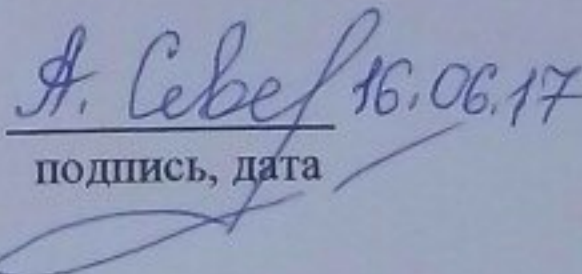 А. Севе 16.06.17
подпись, дата